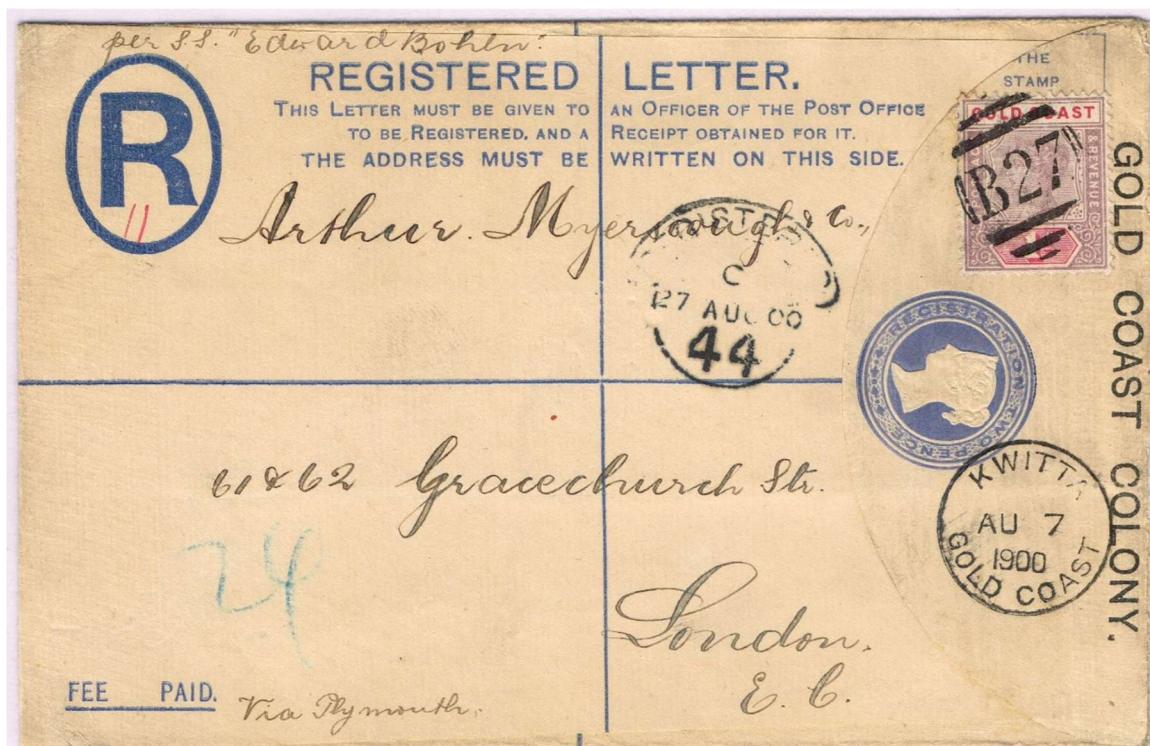 per S.S. "Edward Bohlen".
REGISTERED LETTER.
THIS LETTER MUST BE GIVEN TO AN OFFICER OF THE POST OFFICE
TO BE REGISTERED, AND A RECEIPT OBTAINED FOR IT.
THE ADDRESS MUST BE WRITTEN ON THIS SIDE.
THE
STAMP
R
11
GOLD COAST
& REVENUE
B27
GOLD COAST COLONY.
Arthur. Myerscough & Co.,
C
27 AU 00
44
REGISTRATION TWO PENCE
61 & 62 Gracechurch Str.
KWITTA
AU 7
1900
GOLD COAST
24
London.
E. C.
FEE PAID.
Via Plymouth.